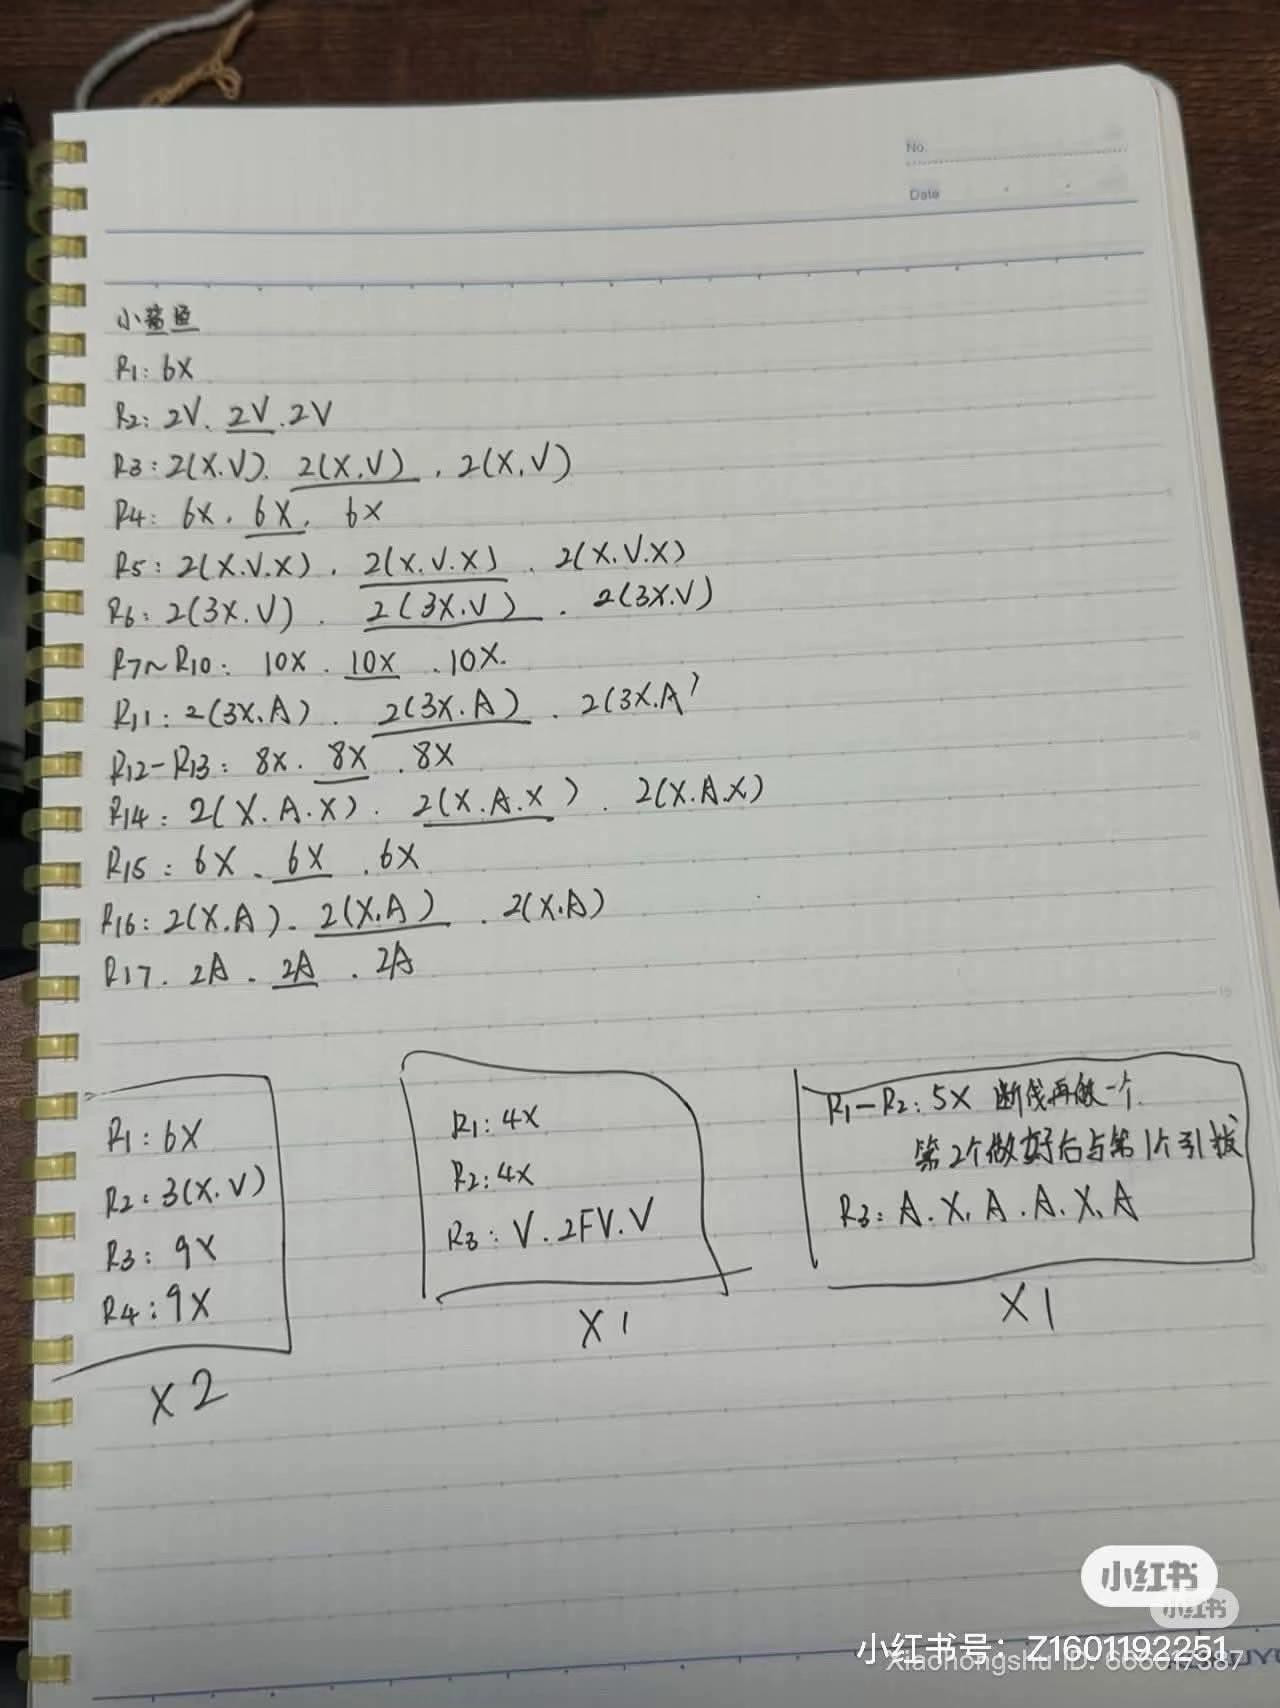 No.
Date
小鲨鱼
R1: 6X
R2: 2V. 2V. 2V
R3: 2(X.V). 2(X.V). 2(X.V)
R4: 6X. 6X. 6X
R5: 2(X.V.X). 2(X.V.X). 2(X.V.X)
R6: 2(3X.V). 2(3X.V). 2(3X.V)
R7~R10: 10X. 10X. 10X.
R11: 2(3X.A). 2(3X.A). 2(3X.A)
R12-R13: 8X. 8X. 8X
R14: 2(X.A.X). 2(X.A.X). 2(X.A.X)
R15: 6X. 6X. 6X
R16: 2(X.A). 2(X.A). 2(X.A)
R17. 2A. 2A. 2A
R1: 6X
R2: 3(X.V)
R3: 9X
R4: 9X
X2
R1: 4X
R2: 4X
R3: V. 2FV. V
X1
R1-R2: 5X 断线再做一个.
第2个做好后与第1个引拔
R3: A. X. A. A. X. A
X1
小红书
小红书
小红书号: Z1601192251